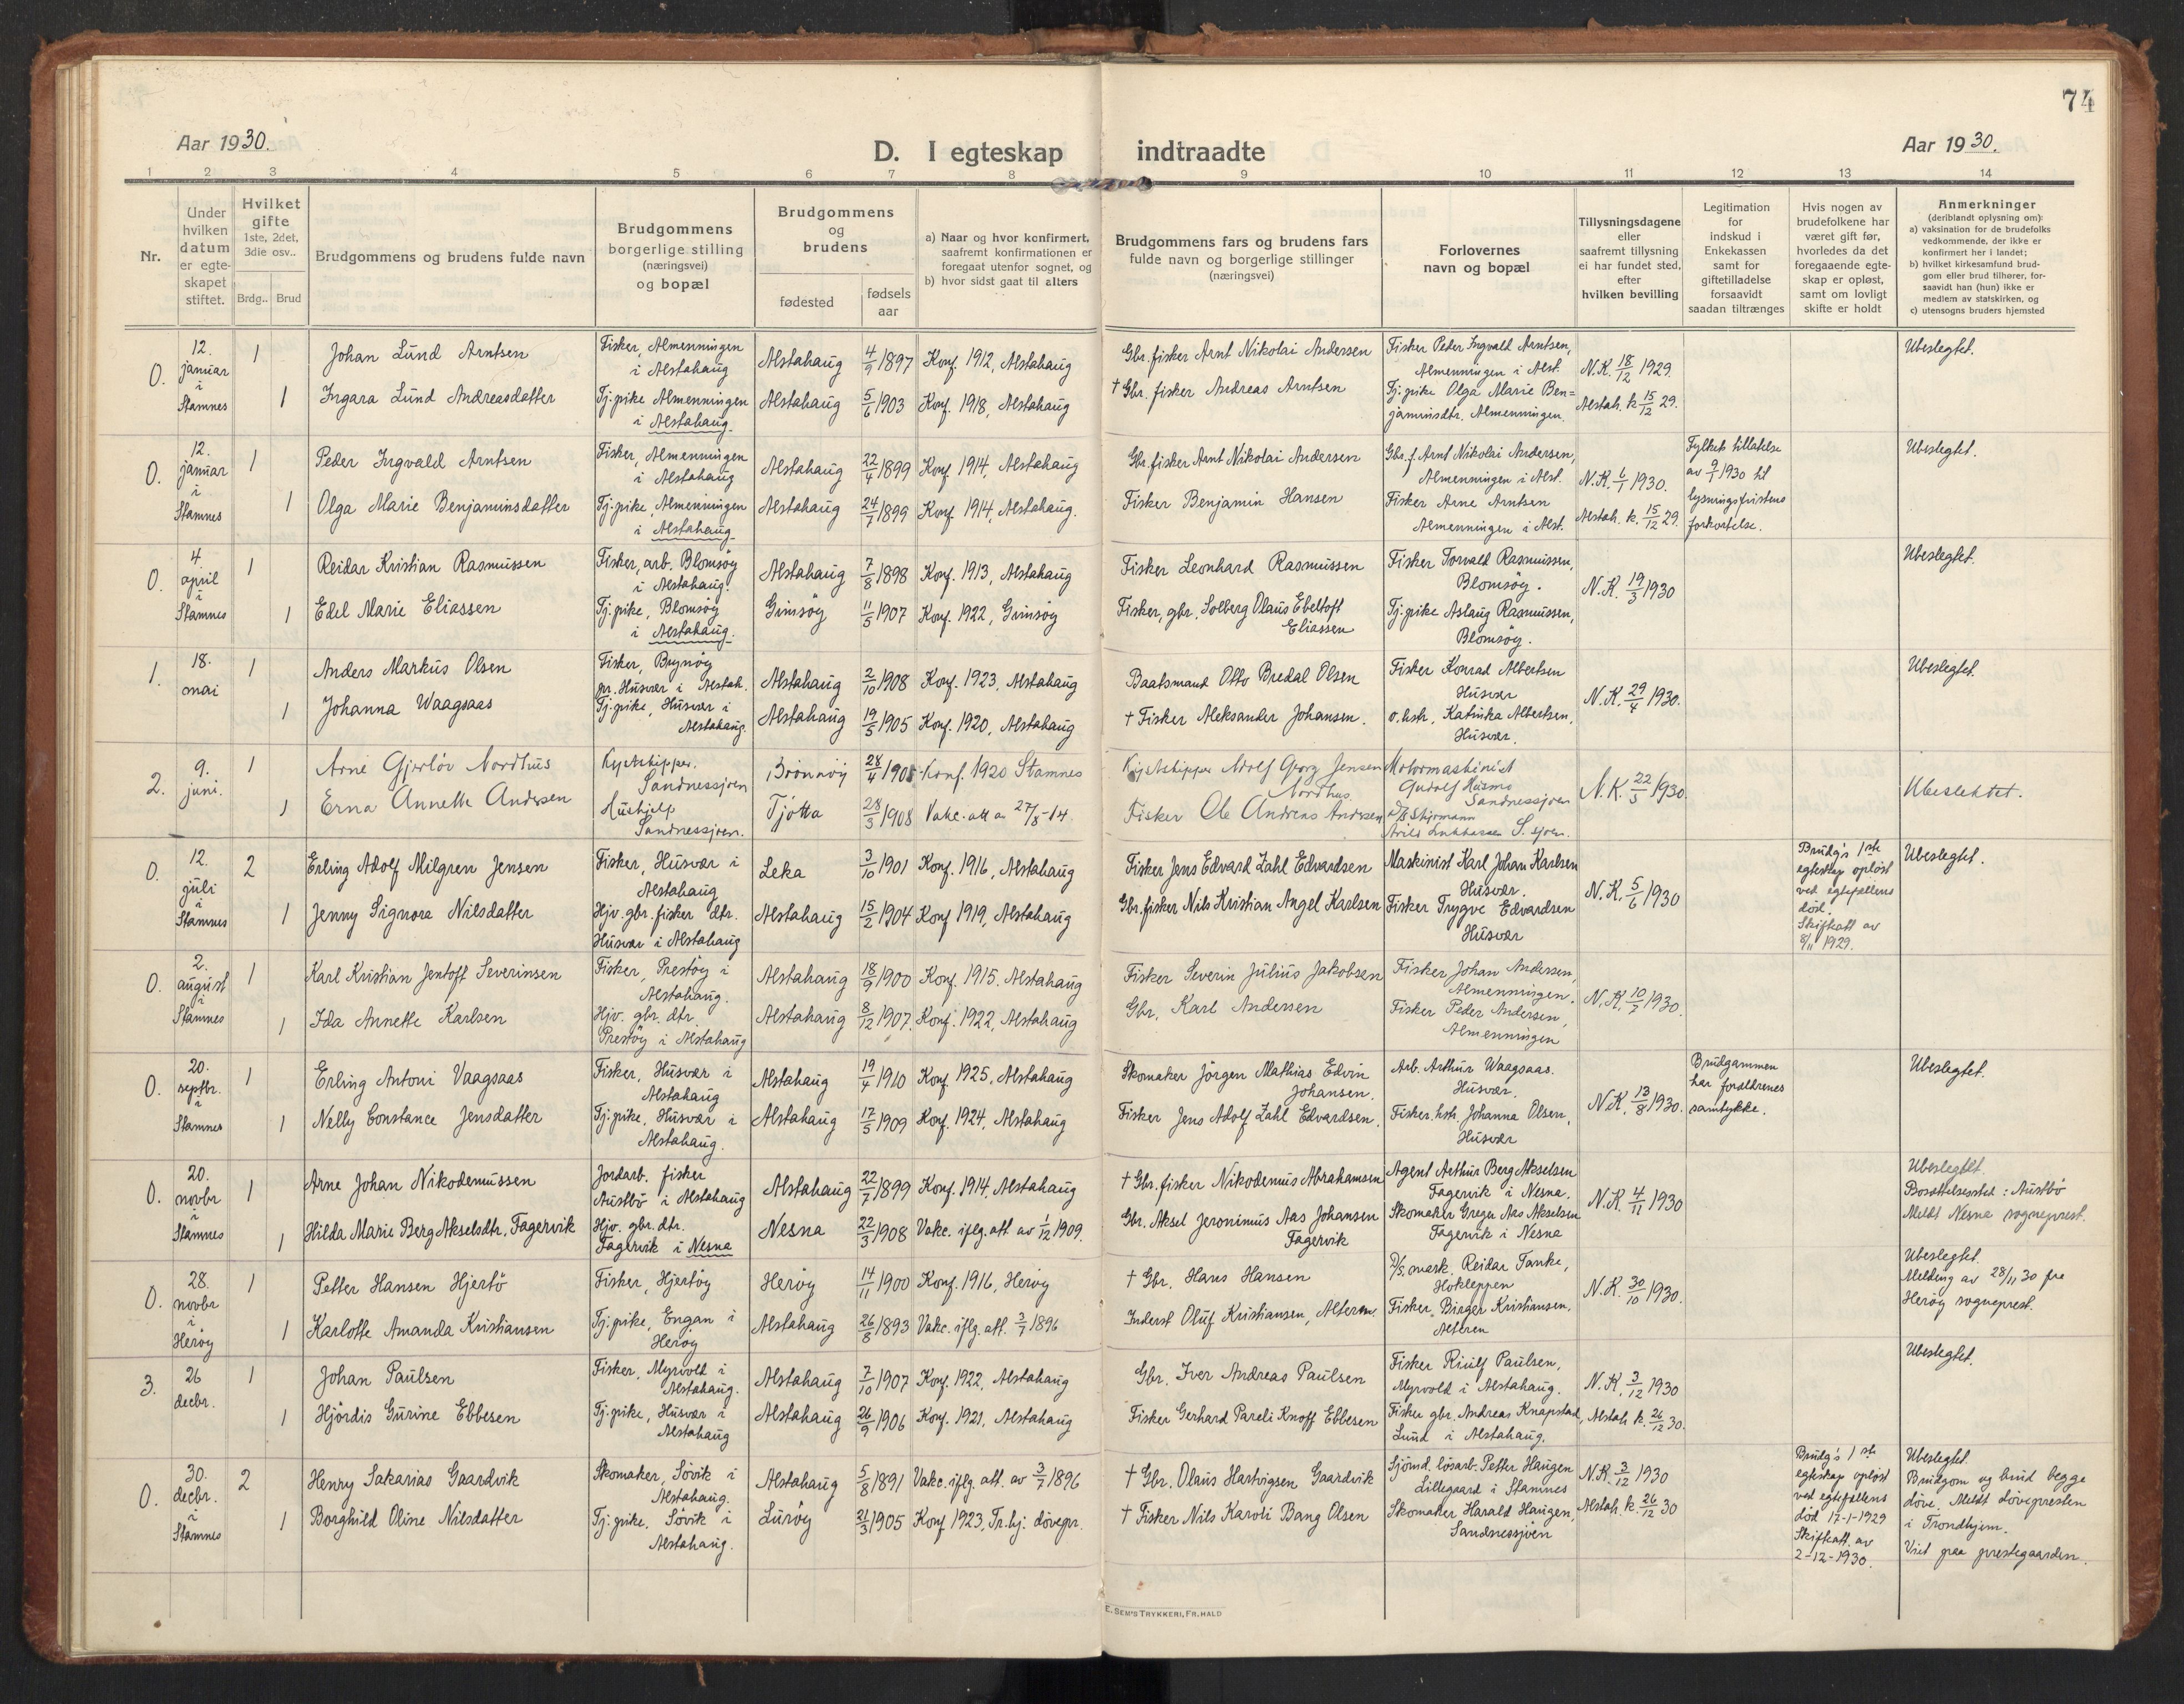 74
Aar 1930.
D. I egteskap indtraadte
Aar 1930.
1 2 3 4 5 6 7 8 9 10 11 12 13 14
Nr.
Under hvilken datum er egteskapet stiftet.
Hvilket gifte
1ste, 2det, 3die osv..
Brdg.. Brud
Brudgommens og brudens fulde navn
Brudgommens borgerlige stilling (næringsvei) og bopæl
Brudgommens og brudens
fødested
fødsels aar
a) Naar og hvor konfirmert, saafremt konfirmationen er foregaat utenfor sognet, og
b) hvor sidst gaat til alters
Brudgommens fars og brudens fars fulde navn og borgerlige stillinger (næringsvei)
Forlovernes navn og bopæl
Tillysningsdagene eller saafremt tillysning ei har fundet sted, efter hvilken bevilling
Legitimation for indskud i Enkekassen samt for giftetilladelse forsaavidt saadan tiltrænges
Hvis nogen av brudefolkene har været gift før, hvorledes da det foregaaende egteskap er opløst, samt om lovligt skifte er holdt
Anmerkninger
(deriblandt oplysning om):
a) vaksination for de brudefolks vedkommende, der ikke er konfirmert her i landet;
b) hvilket kirkesamfund brudgom eller brud tilhører, forsaavidt han (hun) ikke er medlem av statskirken, og
c) utensogns bruders hjemsted
0. 12. januar i Stamnes
1 Johan Lund Arntsen Fisker, Almenningen i Alstahaug Alstahaug 4/9 1897 Konf. 1912, Alstahaug Gbr. fisker Arnt Nikolai Andersen Fisker Peder Ingvald Arntsen, Almenningen i Alst. N.K. 18/12 1929. Ubeslegtet.
1 Ingara Lund Andreasdatter Tj.pike Almenningen i Alstahaug. Alstahaug 5/6 1903 Konf. 1918, Alstahaug † Gbr. fisker Andreas Arntsen Tj.pike Olga Marie Benjaminsdtr. Almenningen. Alstah. k. 15/12 29.
0. 12. januar i Stamnes
1 Peder Ingvald Arntsen Fisker, Almenningen i Alstahaug Alstahaug 22/4 1899 Konf. 1914, Alstahaug Gbr. fisker Arnt Nikolai Andersen Gbr. f. Arnt Nikolai Andersen, Almenningen i Alst. N.K. 6/1 1930. Fylkets tillatelse av 9/1 1930 til lysningsfristens forkortelse. Ubeslegtet.
1 Olga Marie Benjaminsdatter Tj.pike, Almenningen i Alstahaug. Alstahaug 24/7 1899 Konf. 1914, Alstahaug. Fisker Benjamin Hansen Fisker Arne Arntsen Almenningen i Alst. Alstah. k. 15/12 29.
0. 4. april i Stamnes
1 Reidar Kristian Rasmussen Fisker, arb. Blomsøy i Alstahaug. Alstahaug 7/8 1898 Konf. 1913, Alstahaug Fisker Leonhard Rasmussen Fisker Torvald Rasmussen, Blomsøy. N.K. 19/3 1930 Ubeslegtet.
1 Edel Marie Eliassen Tj.pike, Blomsøy i Alstahaug. Gimsøy 11/5 1907 Konf. 1922, Gimsøy Fisker, gbr. Solberg Olaus Ebeltoft Eliassen Tj.pike Aslaug Rasmussen, Blomsøy.
1. 18. mai
1 Anders Markus Olsen Fisker, Brynøy pr. Husvær i Alstah. Alstahaug 2/10 1908 Konf. 1923, Alstahaug Baatsmand Otto Bredal Olsen Fisker Konrad Albertsen Husvær N.K. 29/4 1930. Ubeslegtet.
1 Johanna Waagsaas Tj.pike, Husvær i Alstahaug. Alstahaug 19/5 1905 Konf. 1920, Alstahaug † Fisker Aleksander Johansen. o. hstr. Katinka Albertsen, Husvær.
2. 9. juni.
1 Arne Gjerløv Nordhus Kystskipper. Sandnessjøen Brønnøy 28/4 1905 Konf. 1920 Stamnes Kystskipper Adolf Georg Jensen Nordhus Motormaskinist Gudolf Husmo Sandnessjøen N.K. 22/5 1930. Ubeslektet.
1 Erna Annette Andersen Hushjelp Sandnessjøen. Tjøtta 28/3 1908 Vakc. att. av 27/8-14. Fisker Ole Andreas Andersen D/S Styrmann Arild S.sjøen.
0. 12. juli i Stamnes
2 Erling Adolf Milgren Jensen Fisker, Husvær i Alstahaug Leka 3/10 1901 Konf. 1916, Alstahaug Fisker Jens Edvard Zahl Edvardsen Maskinist Karl Johan Karlsen Husvær. N.K. 5/6 1930 Brudg's 1ste egteskap opløst ved egtefællens død. Skifteatt av 8/11 1929. Ubeslegtet.
1 Jenny Signora Nilsdatter Hjv. gbr. fisker dtr. Husvær i Alstahaug Alstahaug 15/2 1904 Konf. 1919, Alstahaug Gbr. fisker Nils Kristian Angel Karlsen Fisker Trygve Edvardsen Husvær
0. 2. august i Stamnes
1 Karl Kristian Jentoft Severinsen Fisker, Prestøy i Alstahaug. Alstahaug 18/9 1900 Konf. 1915. Alstahaug Fisker Severin Julius Jakobsen Fisker Johan Andersen, Almenningen. N.K. 10/7 1930.
1 Ida Annette Karlsen Hjv. gbr. dtr. Prestøy i Alstahaug Alstahaug 8/12 1907. Konf. 1922, Alstahaug Gbr. Karl Andersen Fisker Peder Andersen, Almenningen
0. 20. septbr. i Stamnes
1 Erling Antoni Vaagsaas Fisker, Husvær i Alstahaug Alstahaug 19/4 1910 Konf. 1925, Alstahaug Skomaker Jørgen Mathias Edvin Johansen. Arb. Arthur Waagsaas. Husvær. N.K. 13/8 1930. Brudgommen har forældrenes samtykke. Ubeslegtet.
1 Nelly Constance Jensdatter Tj.pike, Husvær i Alstahaug. Alstahaug 17/5 1909 Konf. 1924, Alstahaug Fisker Jens Adolf Zahl Edvardsen. Fisker. hstr. Johanna Olsen, Husvær
0. 20. novbr i Stamnes
1 Arne Johan Nikodemussen Jordarb. fisker Austbø i Alstahaug Alstahaug 22/7 1899 Konf. 1914, Alstahaug † Gbr. fisker Nikodemus Abrahamsen Agent Arthur Berg Akselsen Fagervik i Nesna. N.K. 4/11 1930 Ubeslegtet. Bosættelsessted: Austbø Meldt Nesna sogneprest.
1 Hilda Marie Berg Akselsdtr. Fagervik Hjv. gbr. dtr. Fagervik i Nesna Nesna 22/3 1908 Vakc. iflg. att av 1/12 1909. Gbr. Aksel Jeronimus Aas Johansen Fagervik Skomaker Greger Aas Akselsen Fagervik i Nesna
0. 28. novbr i Herøy
1 Petter Hansen Hjertø Fisker, Hjertøy Herøy 14/11 1900 Konf. 1916, Herøy † Gbr. Hans Hansen D/S. mask. Reidar Tanke, Hokleppen N.K. 30/10 1930. Ubeslegtet. Melding av 28/11 30 fra Herøy sogneprest.
1 Karlotte Amanda Kristiansen Tj.pike, Engan i Herøy Alstahaug 26/8 1893 Vakc. iflg. att. 3/7 1896 Inderst Oluf Kristiansen, Alteren. Fisker Birger Kristiansen. Alteren
3. 26 decbr.
1 Johan Paulsen Fisker, Myrvold i Alstahaug. Alstahaug 7/10 1907 Konf. 1922, Alstahaug Gbr. Iver Andreas Paulsen Fisker Riulf Paulsen, Myrvold i Alstahaug. N.K. 3/12 1930 Ubeslegtet.
1 Hjørdis Gurine Ebbesen Tj.pike, Husvær i Alstahaug Alstahaug 26/9 1906 Konf. 1921, Alstahaug Fisker Gerhard Pareli Knoff Ebbesen Fisker gbr. Andreas Knapstad, Lund i Alstahaug. Alstah k. 26/12 30.
0. 30. decbr. i Stamnes
2 Henry Sakarias Gaardvik Skomaker, Søvik i Alstahaug. Alstahaug 5/8 1891 Vakc. iflg. att. av 3/7 1896 † Gbr. Olaus Hartvigsen Gaardvik Sjømd. løsarb. Petter Haugen Lillegaard i Stamnes N.K. 3/12 1930 Brudg's 1ste egteskap opløst ved egtefællens død 17-1-1929 Skifteatt. av 2-12-1930. Ubeslegtet. Brudgom og brud begge døve. Meldt døvepresten i Trondhjem. Viet paa prestegaarden.
1 Borghild Oline Nilsdatter Tj.pike. Søvik i Alstahaug. Lurøy 21/3 1905 Konf 1923, Tr.hj. døvepr. † Fisker Nils Karoli Bang Olsen Skomaker Harald Haugen, Sandnessjøen Alstah. k. 26/12 30
E. SEM'S TRYKKERI, FR.HALD